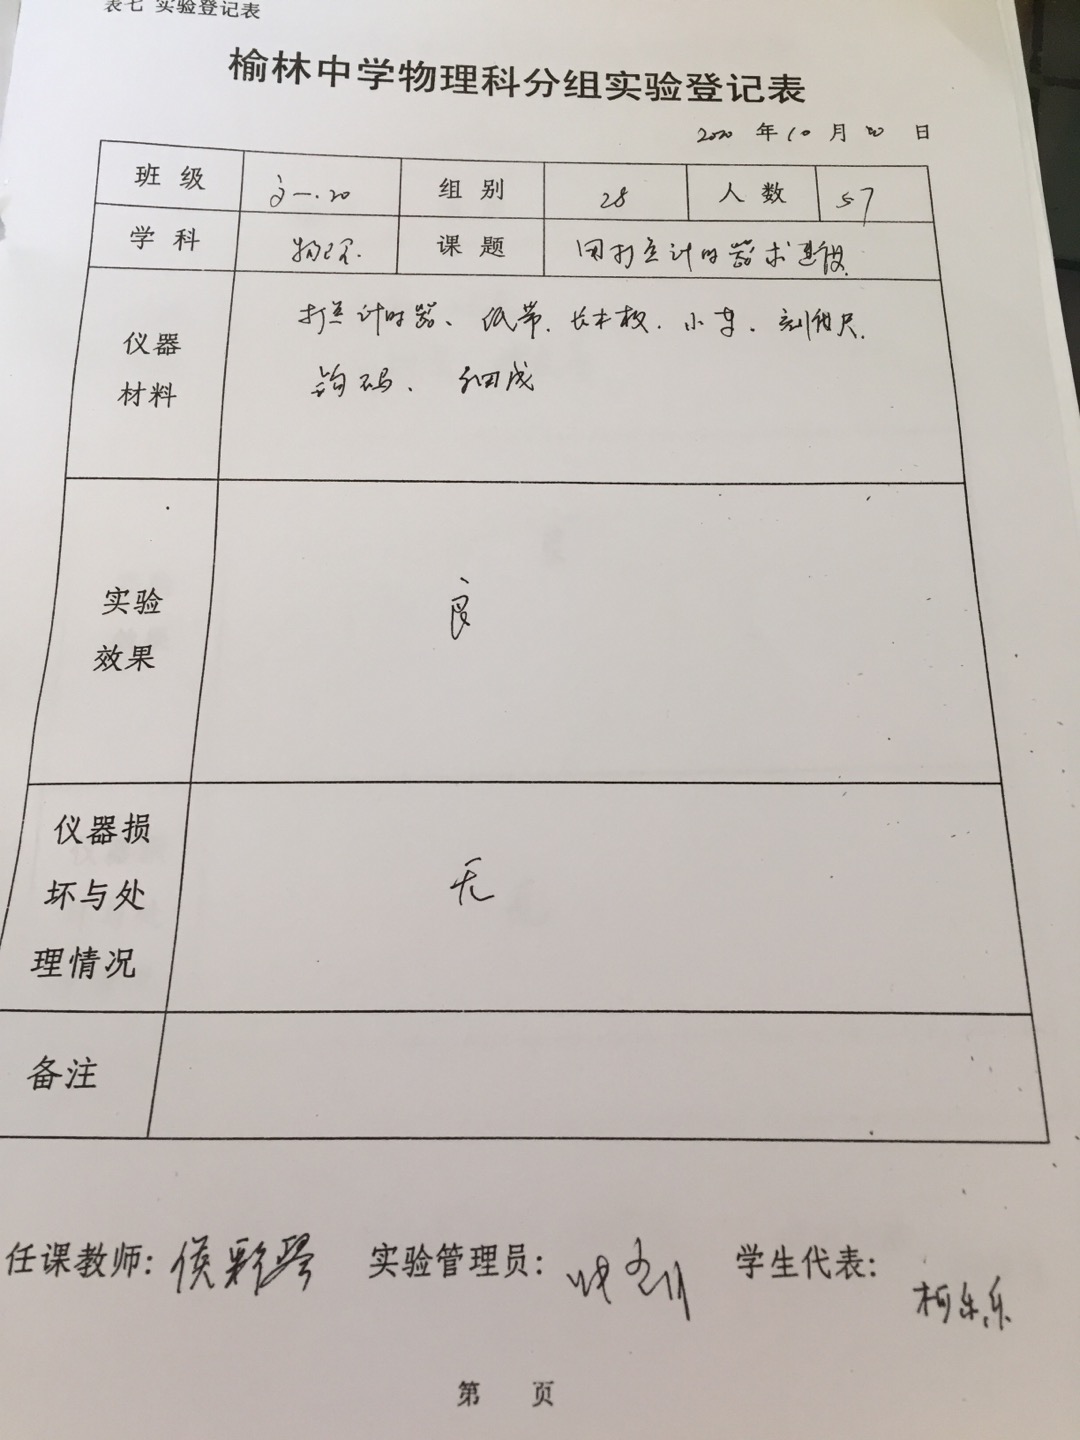 表七 实验登记表
榆林中学物理科分组实验登记表
2020 年 10 月 20 日
班级 高一.20 组别 28 人数 57
学科 物理 课题 用打点计时器求速度
仪器材料 打点计时器、纸带、长木板、小车、刻度尺、
钩码、细线
实验效果 良
仪器损坏与处理情况 无
备注
任课教师: 侯彩琴 实验管理员: 学生代表: 柯乐乐
第 页